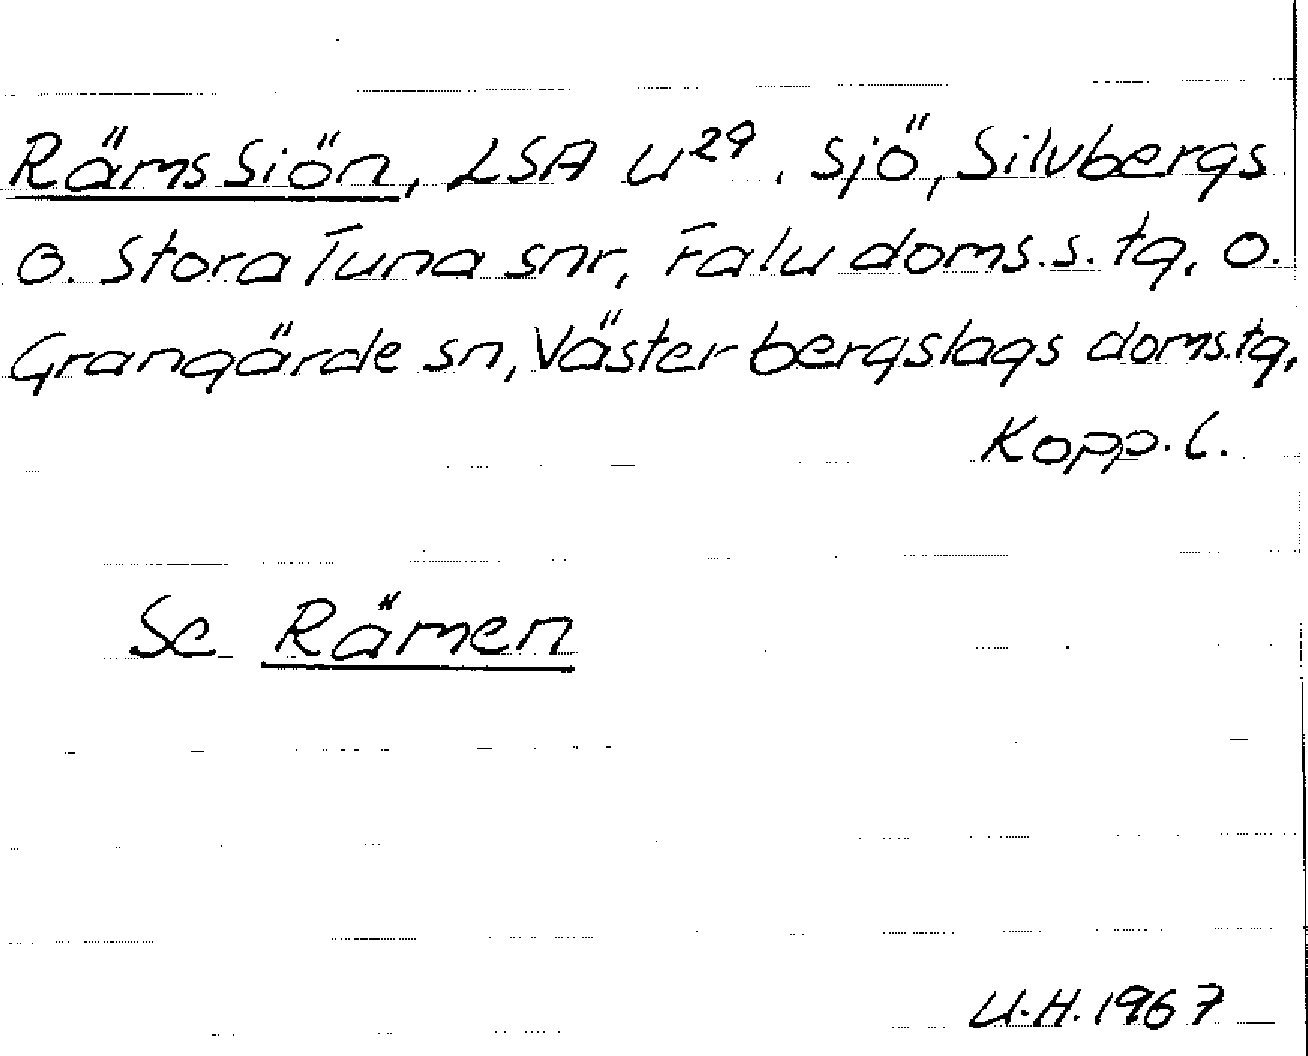 Räms Siön, LSA U29. sjö, Silvbergs
o. Stora Tuna snr, Falu doms.s. tg, o.
Grangärde sn, Västerbergslags doms.tg,
Kopp. l.
Se Rämen
U.H. 1967